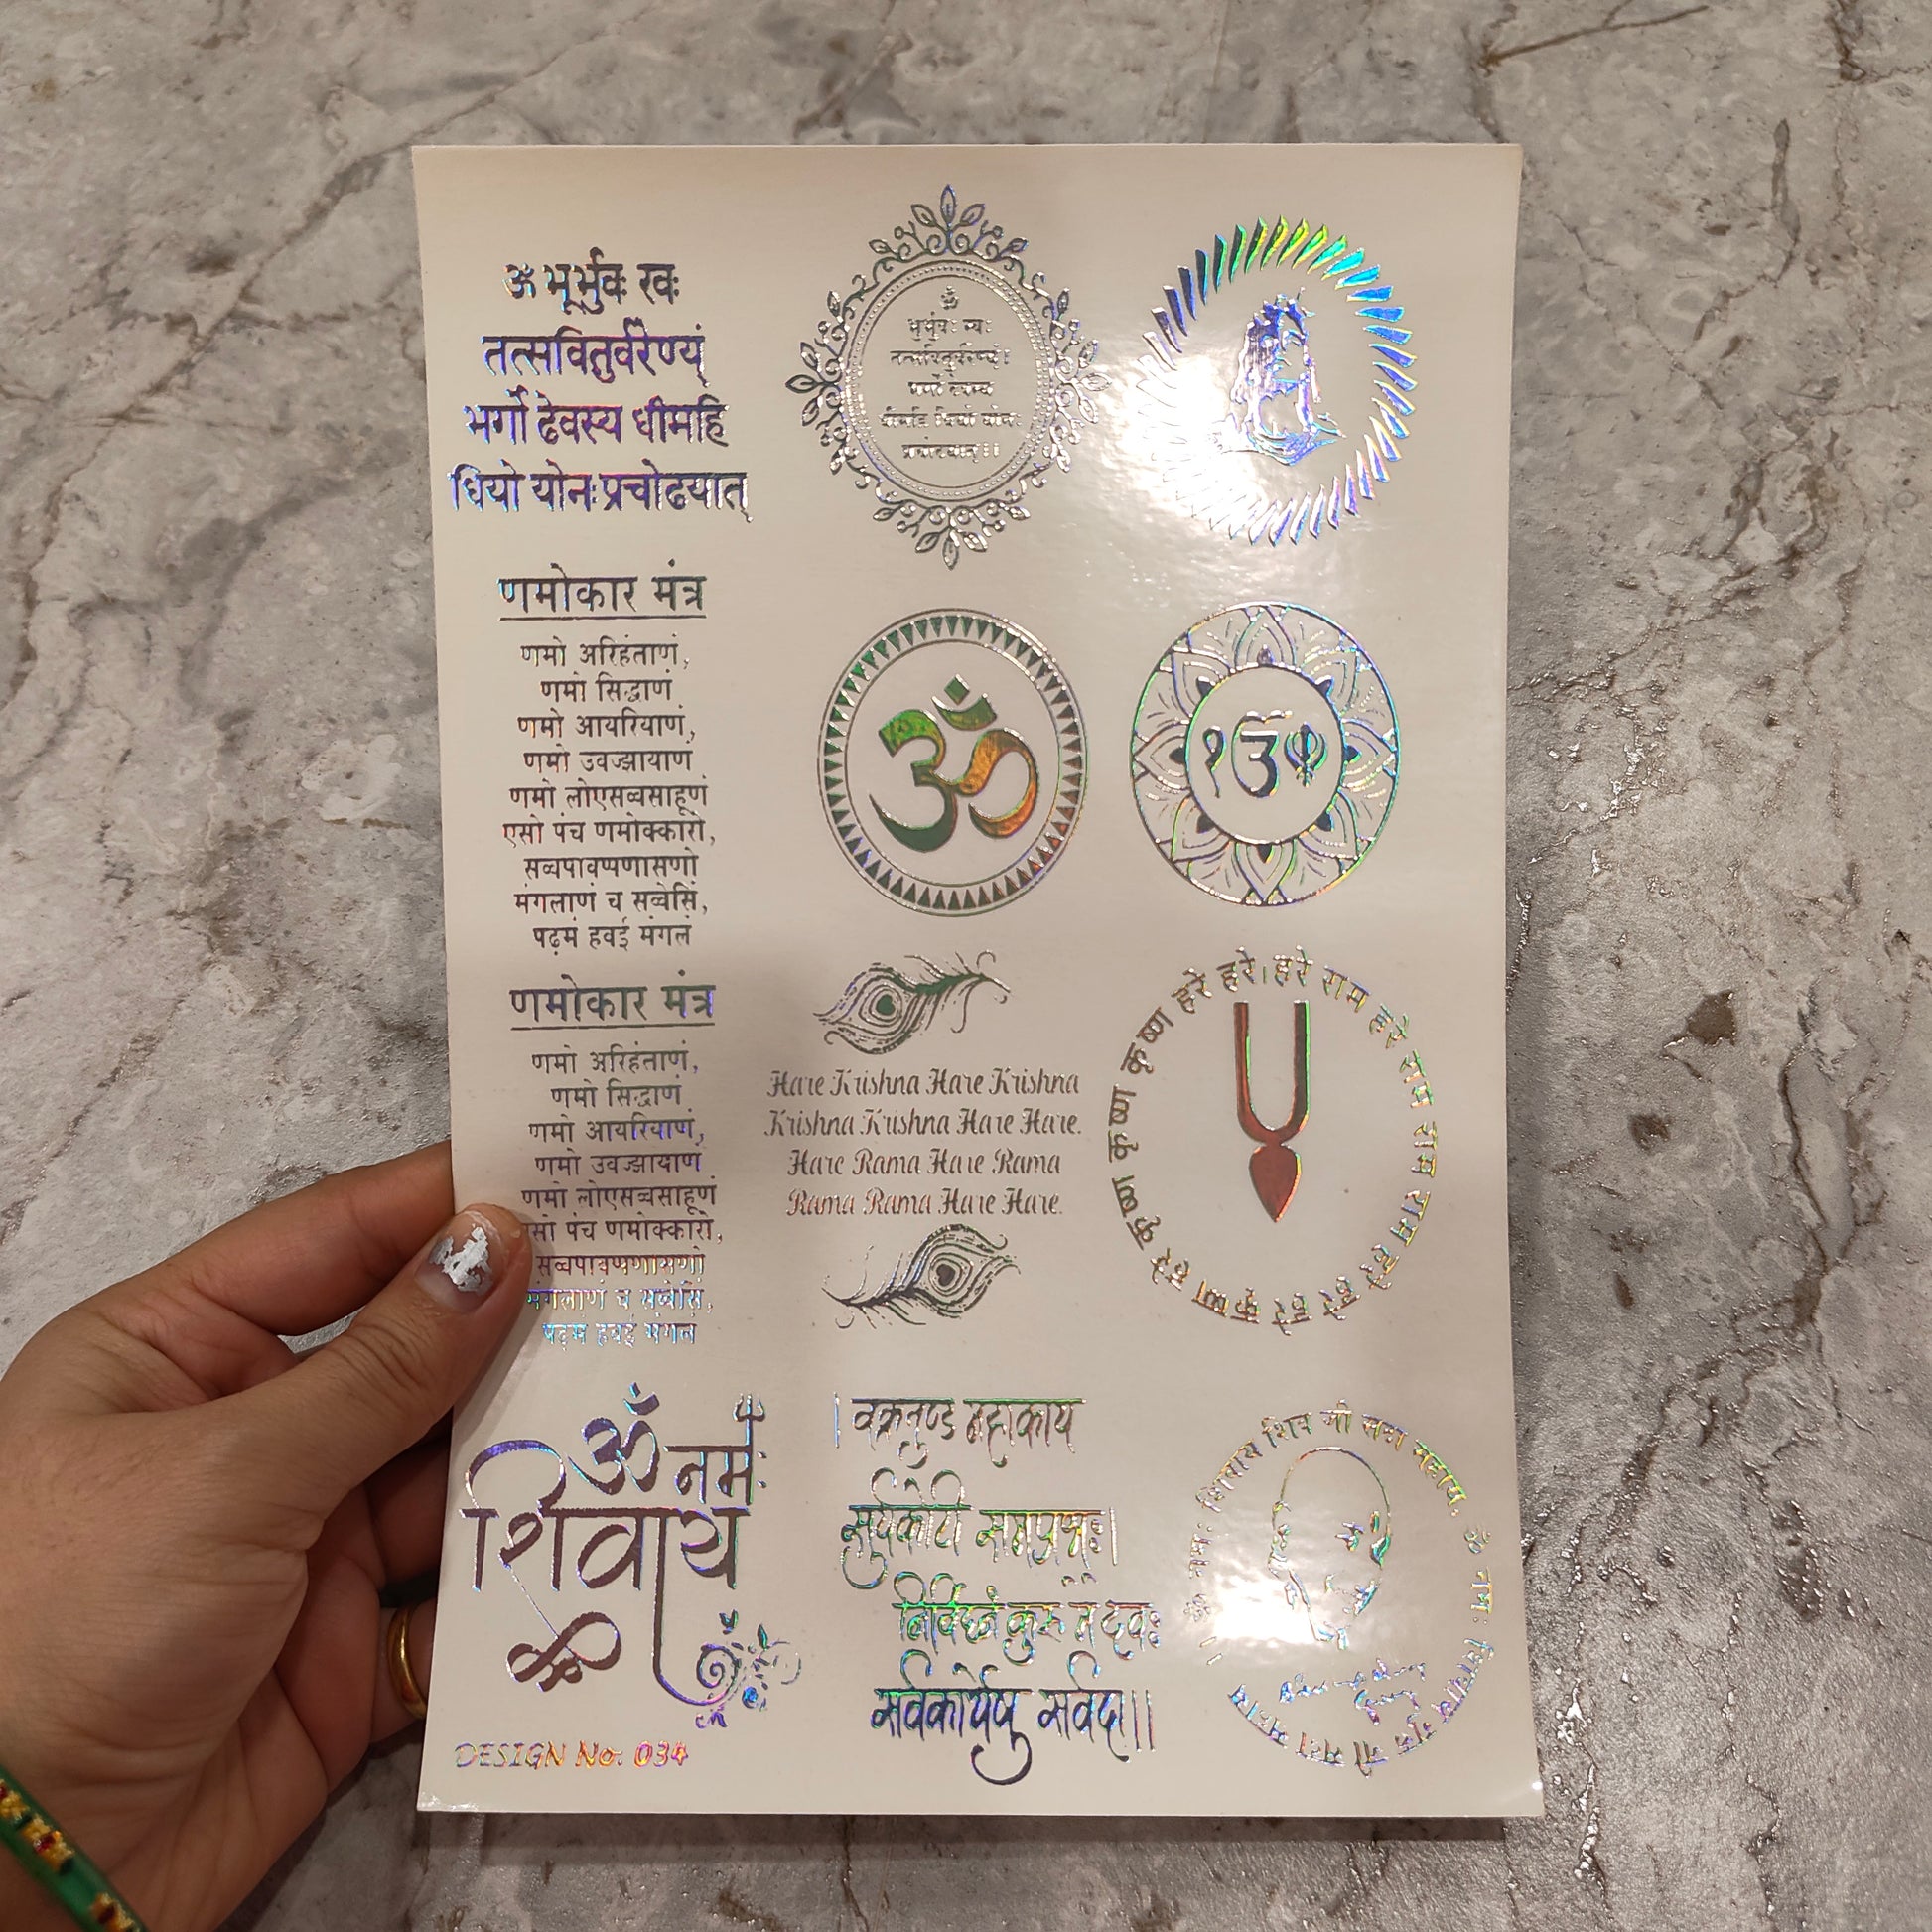 ॐ भूर्भुवः स्वः
तत्सवितुर्वरेण्यं
भर्गो देवस्य धीमहि
धियो योनः प्रचोदयात्
ॐ
भूर्भुवः स्वः
तत्सवितुर्वरेण्यं।
भर्गो देवस्य
धीमहि धियो योनः
प्रचोदयात्।।
णमोकार मंत्र
णमो अरिहंताणं,
णमो सिद्धाणं
णमो आयरियाणं,
णमो उवज्झायाणं
णमो लोएसव्वसाहूणं
एसो पंच णमोक्कारो,
सव्वपावप्पणासणो
मंगलाणं च सव्वेसिं,
पढ़मं हवई मंगलं
ॐ
ੴ
णमोकार मंत्र
णमो अरिहंताणं,
णमो सिद्धाणं
णमो आयरियाणं,
णमो उवज्झायाणं
णमो लोएसव्वसाहूणं
पंच णमोक्कारो,
सव्वपावप्पणासणो
मंगलाणं च सव्वेसिं,
पढ़मं हवई मंगलं
Hare Krishna Hare Krishna
Krishna Krishna Hare Hare.
Hare Rama Hare Rama
Rama Rama Hare Hare.
हरे कृष्ण हरे कृष्ण कृष्ण कृष्ण हरे हरे। हरे राम हरे राम राम राम हरे हरे
ॐ नमः
शिवाय
। वक्रतुण्ड महाकाय
सुर्यकोटी समप्रभः।
निर्विघ्नं कुरु मे देवः
सर्वकार्येषु सर्वदा।।
ॐ नमः शिवाय शिव जी सदा सहाय. ॐ नमः शिवाय
DESIGN No. 034